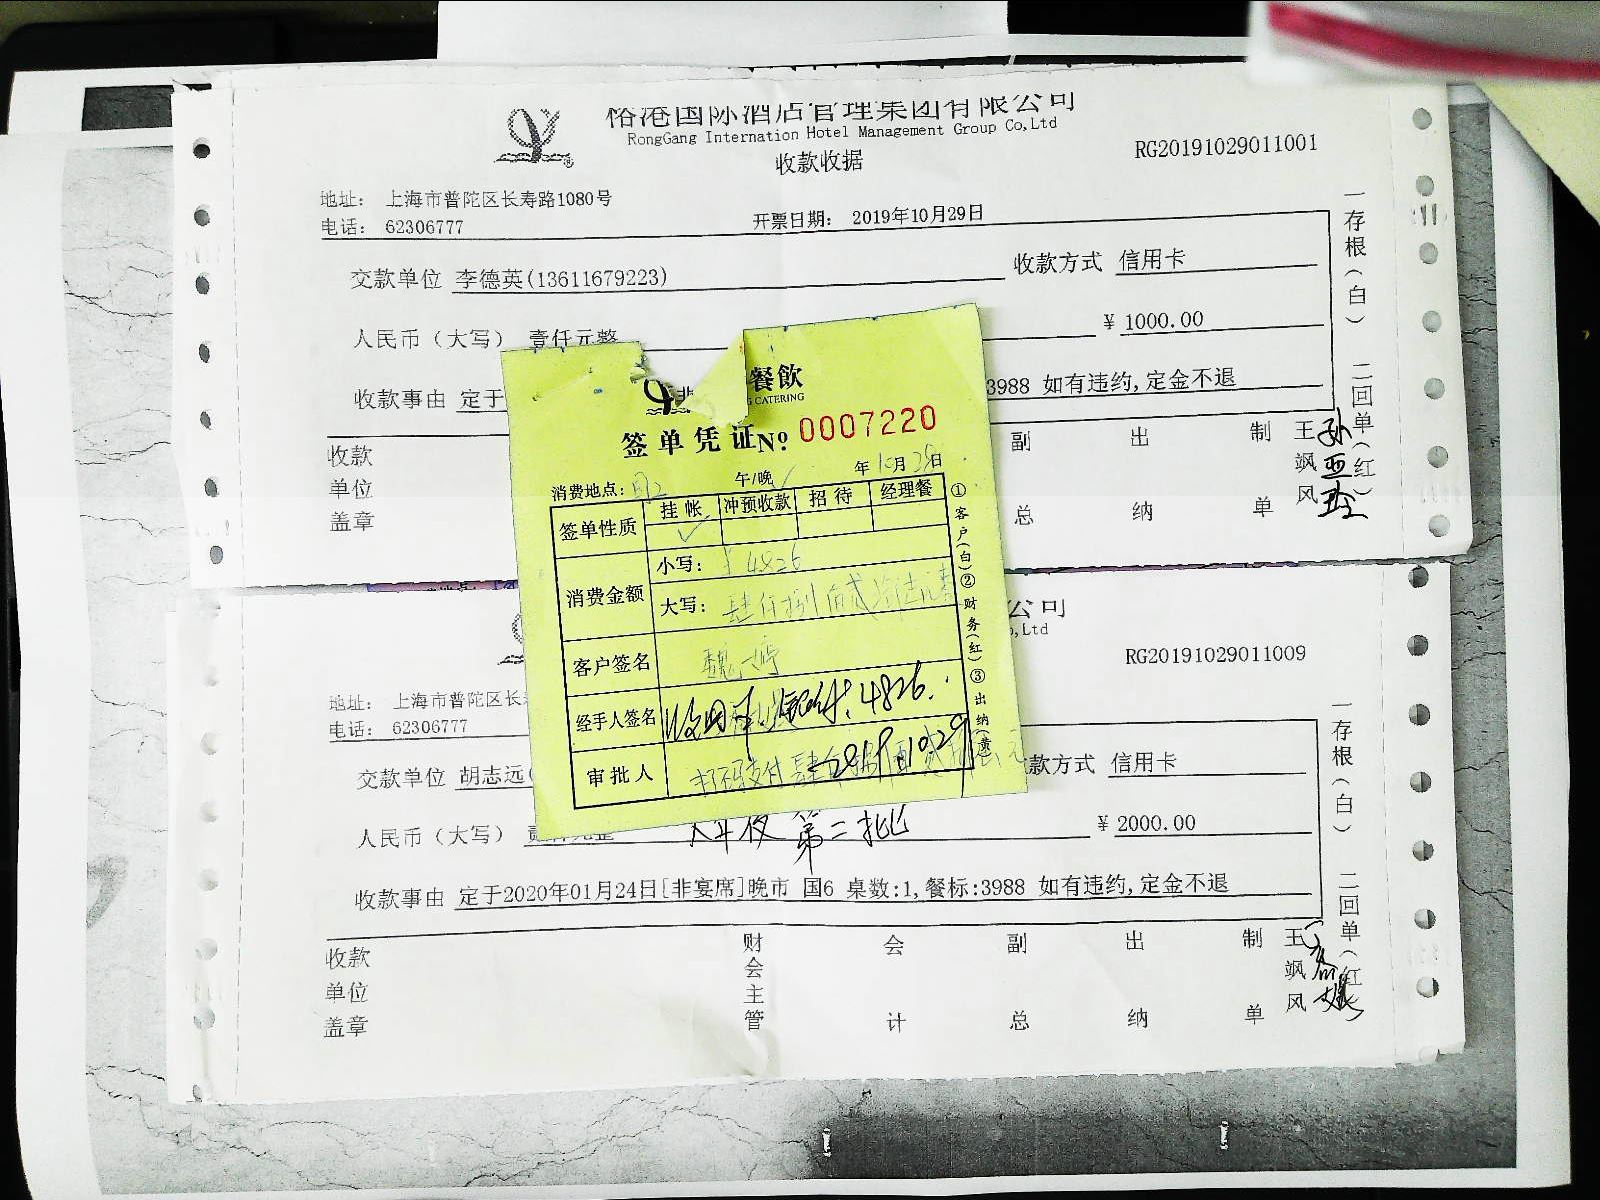 国际酒店管理集团有限公司
RongGang Internation Hotel Management Group Co,Ltd
收款收据
RG20191029011001
地址： 上海市普陀区长寿路1080号
电话： 62306777
开票日期： 2019年10月29日
交款单位 李德英(13611679223)
收款方式 信用卡
人民币（大写） 壹仟元整
¥ 1000.00
收款事由 定于
3988 如有违约,定金不退
收款单位盖章
副总
出纳
制单
王飒风
一存根(白)
二回单(红)
餐飲
CATERING
签单凭证 №. 0007220
消费地点：
午/晚 ✓
年10月29日
签单性质
挂帐 ✓
冲预收款
招待
经理餐
消费金额
小写： ¥4826
大写： 肆仟捌佰贰拾陆元整
客户签名
经手人签名
4826.
审批人
2019 10 29
①客户(白)②财务(红)③出纳(黄)
公司
,Ltd
RG20191029011009
地址： 上海市普陀区长
电话： 62306777
交款单位 胡志远(
款方式 信用卡
人民币（大写）
第二批
¥ 2000.00
收款事由 定于2020年01月24日[非宴席]晚市 国6 桌数:1,餐标:3988 如有违约,定金不退
收款单位盖章
财会主管
会计
副总
出纳
制单
王飒风
一存根(白)
二回单(红)